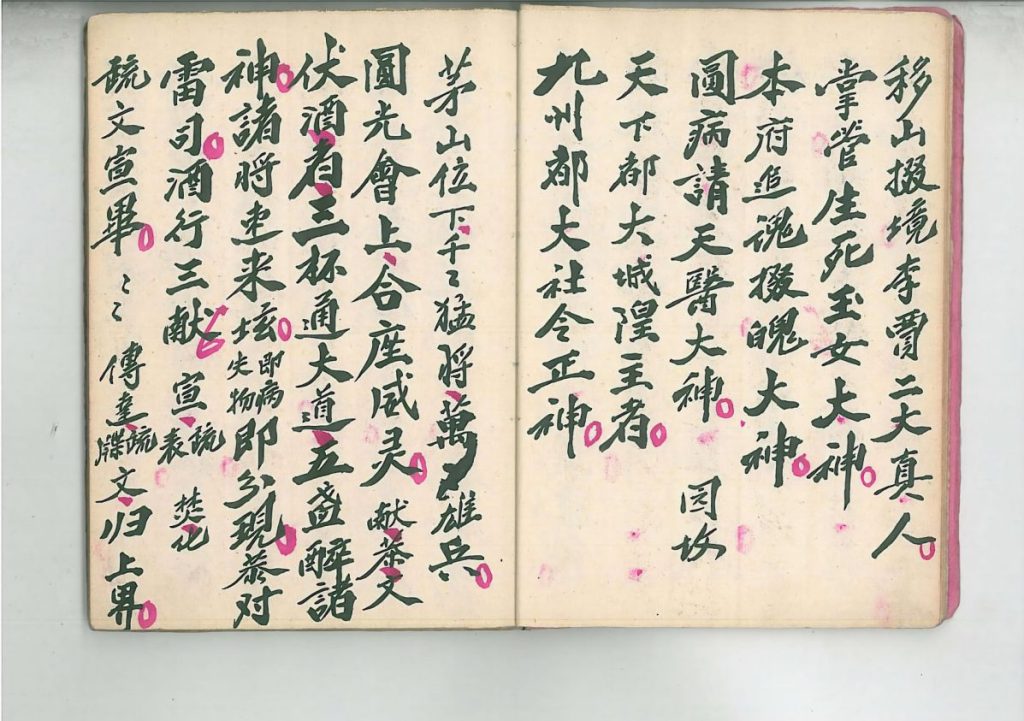 移山掇境李賈二大真人
掌管生死玉女大神
本府追魂掇魄大神
圓病請天醫大神 园坟
天下都大城隍主者
九州都大社令正神
茅山位下千〻猛将萬〻雄兵
圓光會上合座威灵 献茶文
伏酒者三杯通大道五盏醉諸
神諸将速来坛 即病 失物 即分現恭对
雷司酒行三献 宣 疏 表 焚化
疏文宣畢〻〻 傳達 疏 牒 文归上界